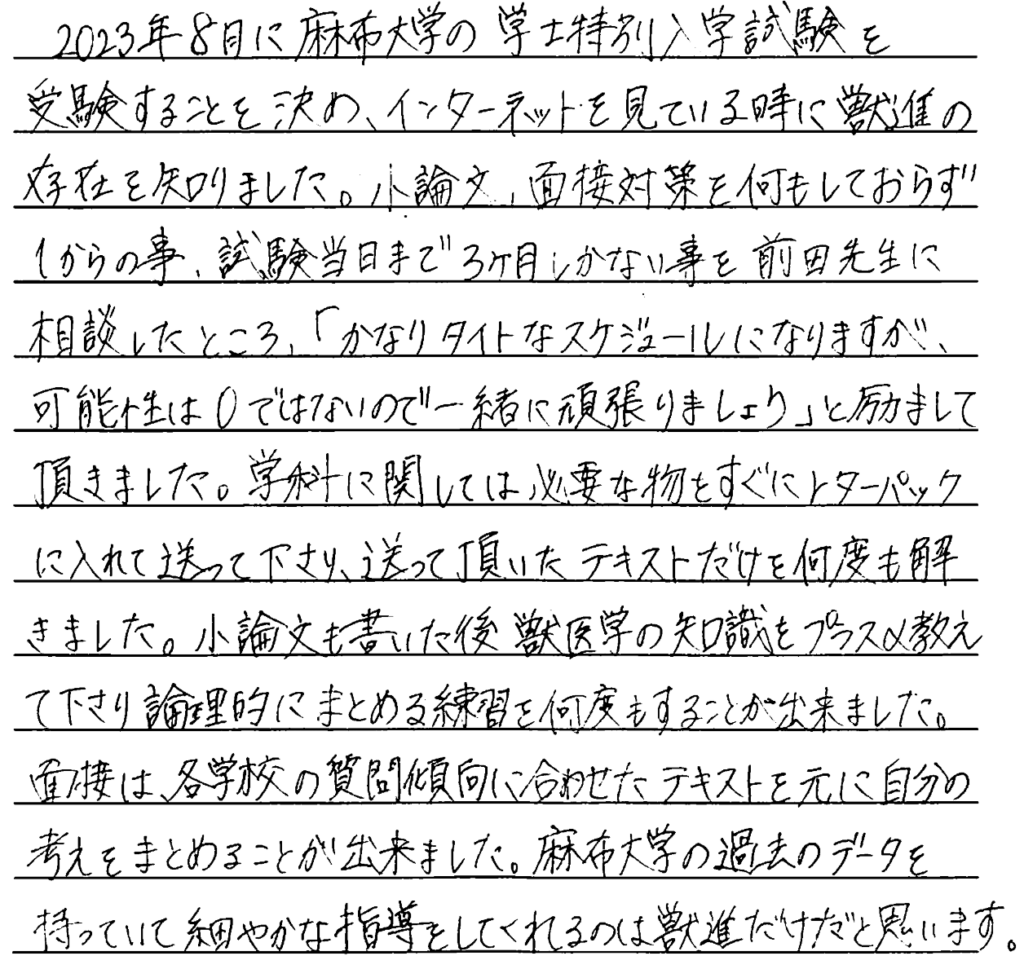 2023年8月に麻布大学の学士特別入学試験を
受験することを決め、インターネットを見ている時に獣進の
存在を知りました。小論文、面接対策を何もしておらず
1からの事、試験当日まで3ヶ月しかない事を前田先生に
相談したところ、「かなりタイトなスケジュールになりますが、
可能性は0ではないので一緒に頑張りましょう」と励まして
頂きました。学科に関しては必要な物をすぐにレターパック
に入れて送って下さり、送って頂いたテキストだけを何度も解
きました。小論文も書いた後獣医学の知識をプラスα教え
て下さり論理的にまとめる練習を何度もすることが出来ました。
面接は、各学校の質問傾向に合わせたテキストを元に自分の
考えをまとめることが出来ました。麻布大学の過去のデータを
持っていて細やかな指導をしてくれるのは獣進だけだと思います。